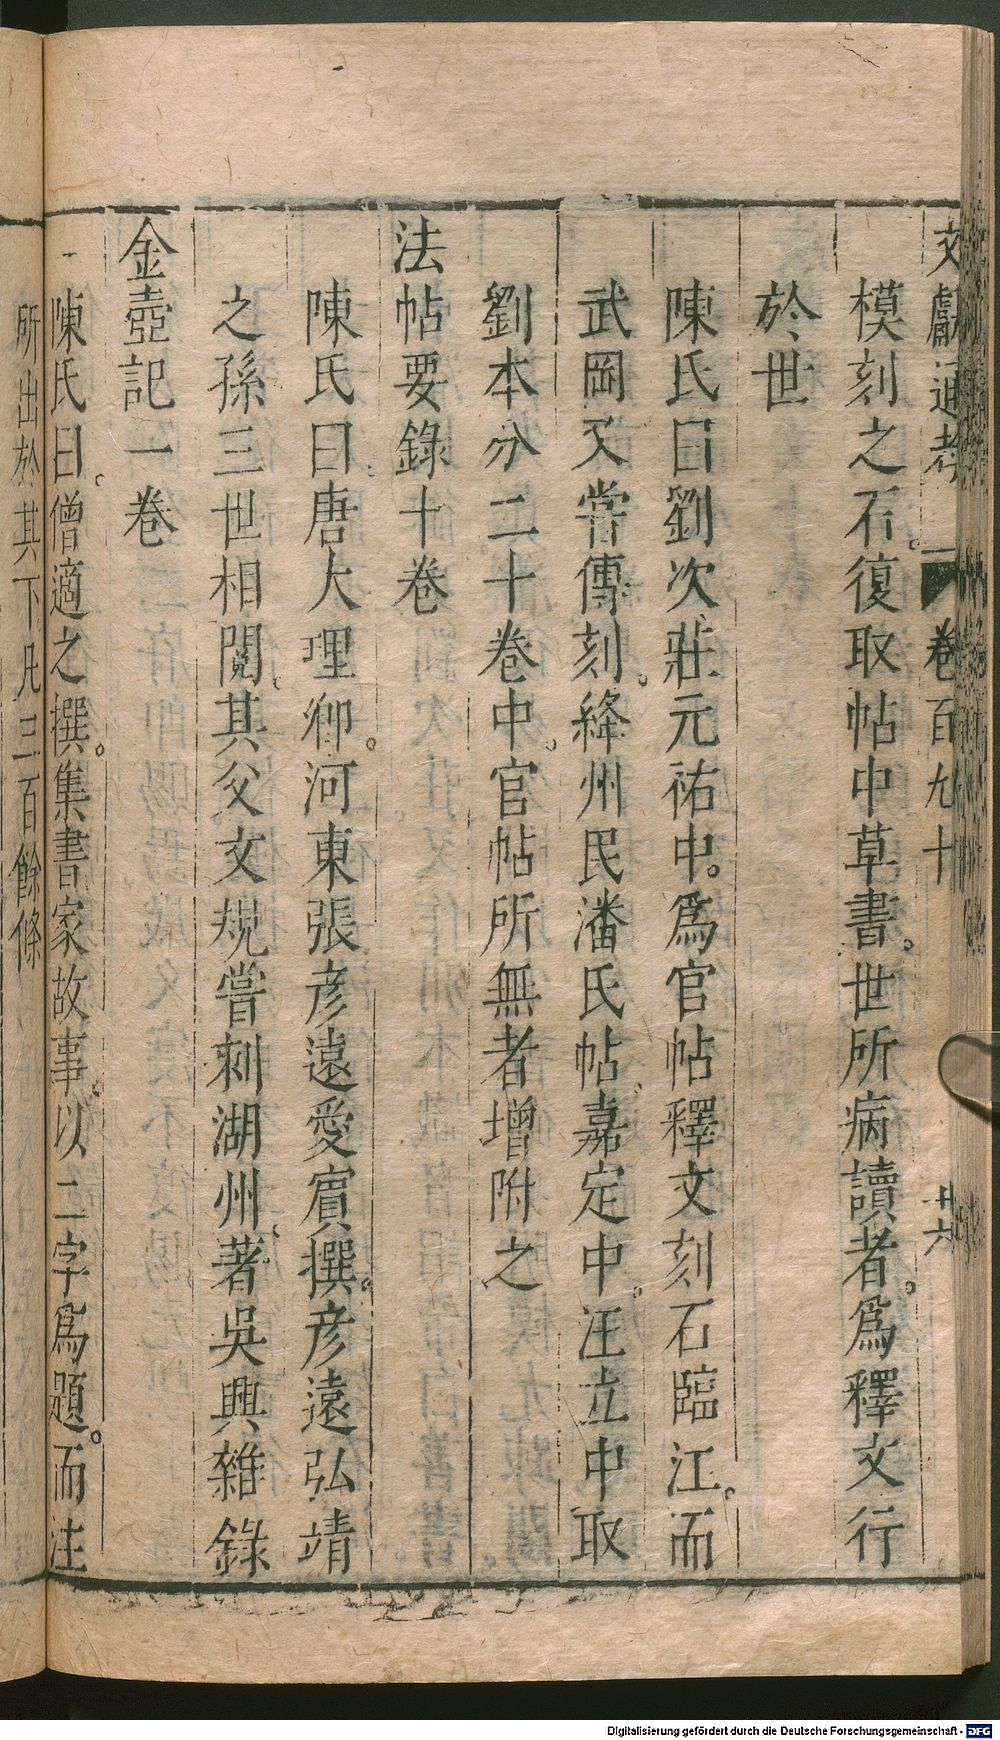 文獻通考 卷百九十 廿六
模刻之石。復取帖中草書。世所病讀者。爲釋文行
於世
陳氏曰劉次莊元祐中。爲官帖釋文刻石臨江。而
武岡又嘗傳刻。絳州民潘氏帖。嘉定中。汪立中取
劉本分二十卷中。官帖所無者增附之
法帖要錄十卷
陳氏曰。唐大理卿。河東張彦遠愛賓撰。彦遠弘靖
之孫三世相閱。其父文規嘗刺湖州。著吳興雜錄
金壺記一卷
陳氏曰。僧適之撰。集書家故事。以二字爲題。而注
所出於其下凡三百餘條
Digitalisierung gefördert durch die Deutsche Forschungsgemeinschaft - DFG